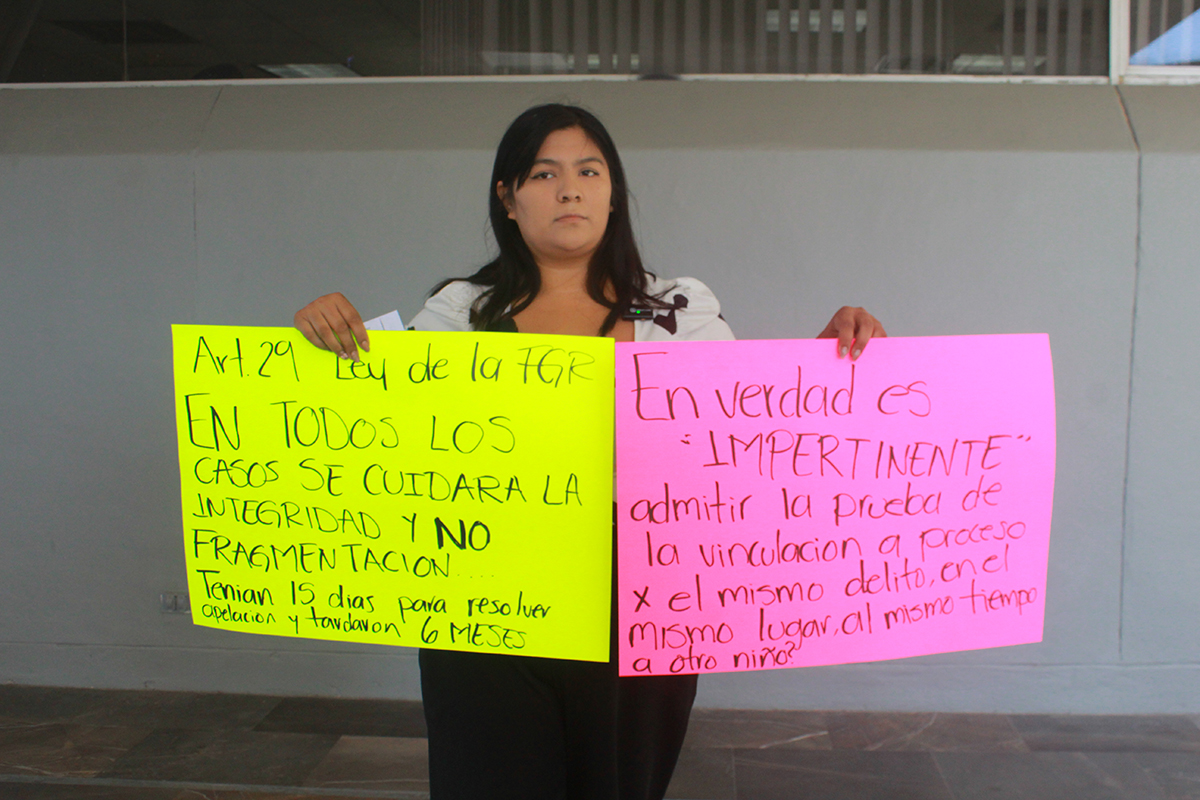 Art. 29 Ley de la FGR
EN TODOS LOS
CASOS SE CUIDARA LA
INTEGRIDAD Y NO
FRAGMENTACION....
Tenian 15 dias para resolver
apelacion y tardaron 6 MESES
En verdad es
"IMPERTINENTE"
admitir la prueba de
la vinculacion a proceso
x el mismo delito, en el
mismo lugar, al mismo tiempo
a otro niño?